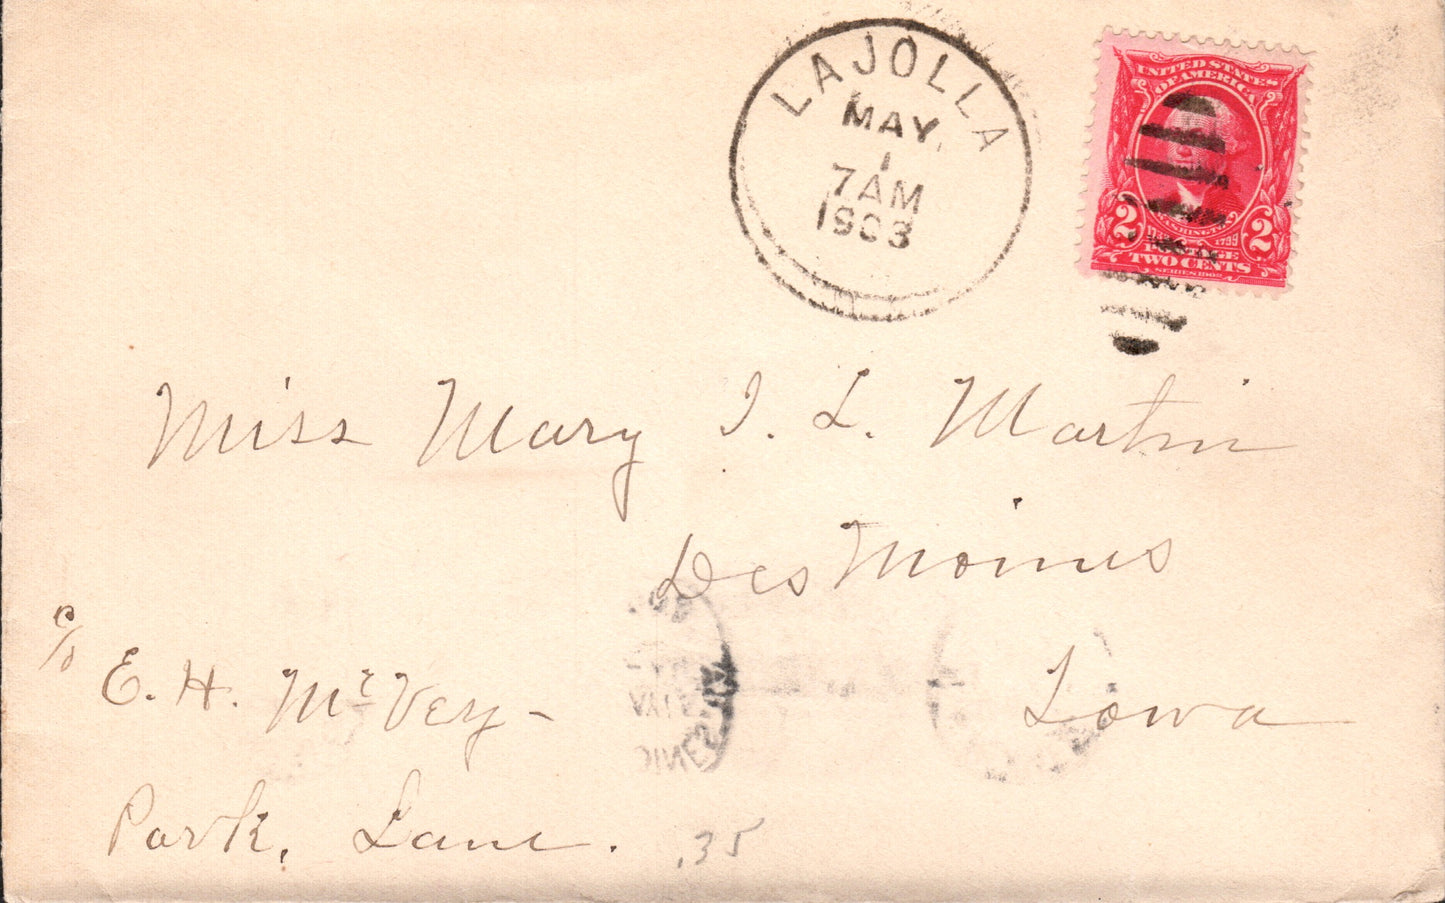 LA JOLLA
MAY
1
7 AM
1903
UNITED STATES
OF AMERICA
2 2
1799
POSTAGE
TWO CENTS
SERIES 1902
Miss Mary I. L. Martin
Des Moines
Iowa
c/o
E. H. McVey -
Park, Lane.
.35